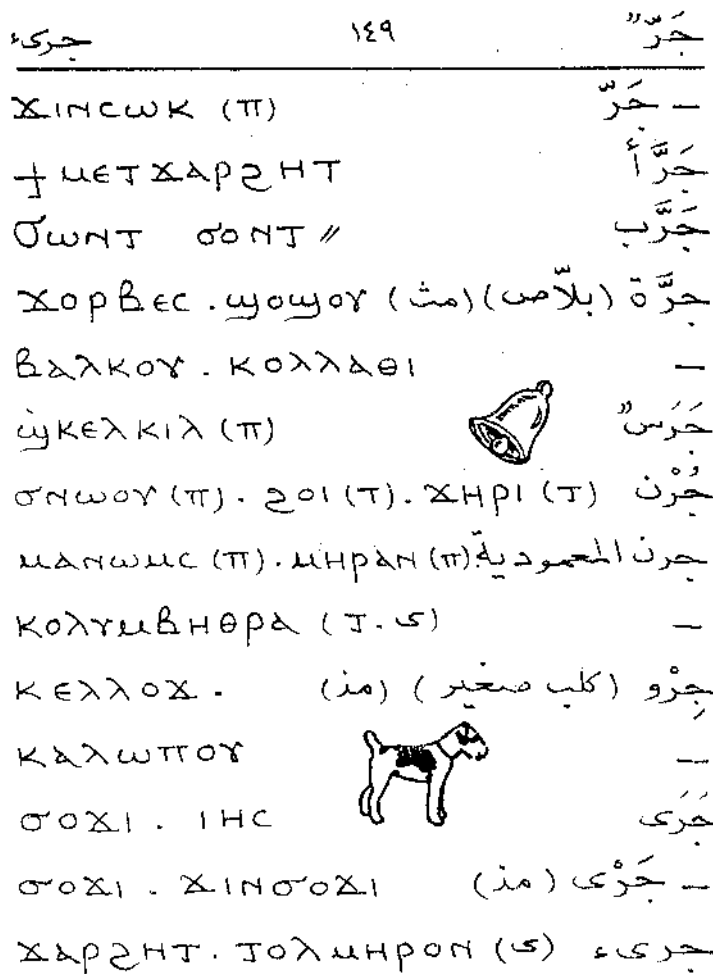 جَرٌّ ١٤٩ جرىء
ϫⲓⲛⲥⲱⲕ (ⲡ) – جَرّ
ϯⲙⲉⲧϫⲁⲣϩⲏⲧ جَرَّأ
ϭⲱⲛⲧ ϭⲟⲛⲧ// جَرَّب
ϫⲟⲣⲃⲉⲥ . ϣⲟϣⲟⲩ جرَّة (بلاّص) (مث)
ⲃⲁⲗⲕⲟⲩ . ⲕⲟⲗⲗⲁⲑⲓ –
ϣ̀ⲕⲉⲗⲕⲓⲗ (ⲡ) جَرَسٌ
ϭⲛⲱⲟⲩ (ⲡ) . ϩⲟⲓ (ⲧ) . ϫⲏⲣⲓ (ⲧ) جُرْن
ⲙⲁⲛⲱⲙⲥ (ⲡ) . ⲙⲏⲣⲁⲛ (ⲡ) جرن المعمودية
ⲕⲟⲗⲩⲙⲃⲏⲑⲣⲁ (ⲧ . ى) –
ⲕⲉⲗⲗⲟϫ . جِرْو (كلب صغير) (مذ)
ⲕⲁⲗⲱⲡⲟⲩ –
ϭⲟϫⲓ . ⲓⲏⲥ جَرَى
ϭⲟϫⲓ . ϫⲓⲛϭⲟϫⲓ – جَرْى (مذ)
ϫⲁⲣϩⲏⲧ . ⲧⲟⲗⲙⲏⲣⲟⲛ (ى) جرىء